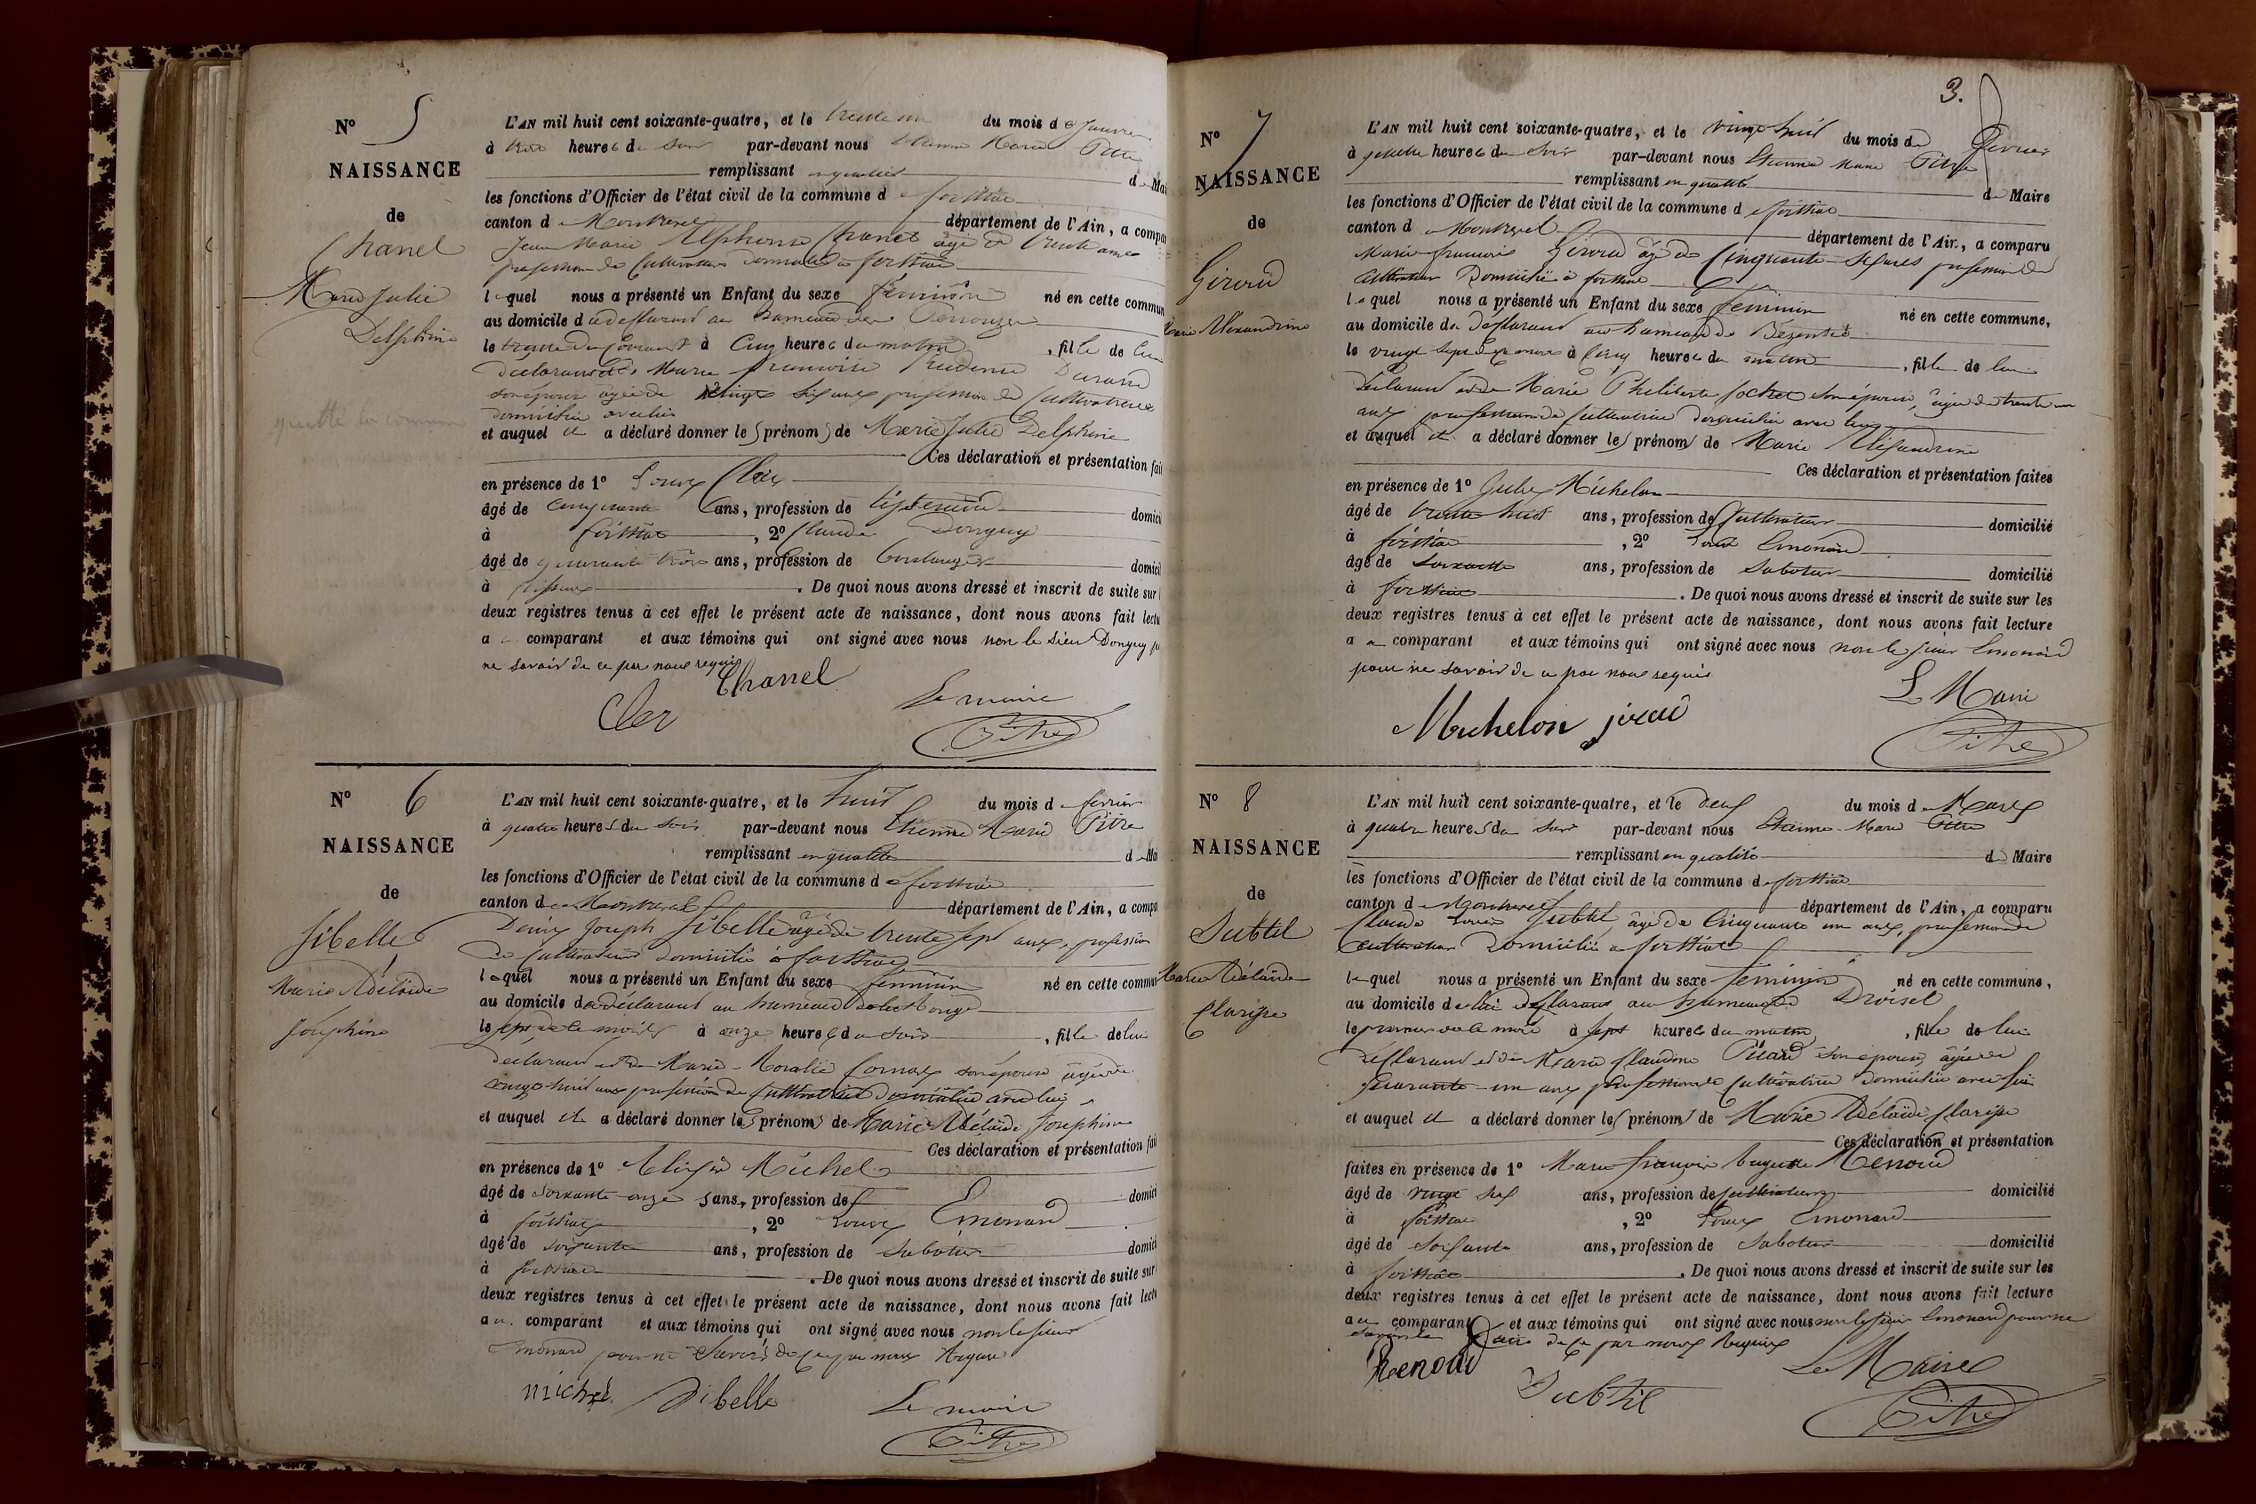 Nº 5
NAISSANCE
de
Chanel
Marie Julie
Delphine
quitte la commune
L'AN mil huit cent soixante-quatre, et le trente un du mois de Janvier
à trois heures du soir par-devant nous Etienne Marie Pitre
remplissant en qualité de Mai
les fonctions d'Officier de l'état civil de la commune de foissiat
canton de Montrevel département de l'Ain, a compa
Jean Marie Alphonse Chanel âgé de trente ans
profession de Cultivateur domicilié à foissiat
lequel nous a présenté un Enfant du sexe féminin né en cette commun
au domicile du déclarant au hameau de
le trente du courant à Cinq heures du matin, fille de lui
déclarant et de Marie Françoise Prudence Durand
son épouse âgée de vingt six ans profession de Cultivatrice
domiciliée avec lui
et auquel il a déclaré donner les prénoms de Marie Julie Delphine
Ces déclaration et présentation fai
en présence de 1º Louis Cler
âgé de cinquante ans, profession de domici
à foissiat, 2º Claude Donguy
âgé de quarante trois ans, profession de Boulanger domici
à foissiat. De quoi nous avons dressé et inscrit de suite sur
deux registres tenus à cet effet le présent acte de naissance, dont nous avons fait lectu
au comparant et aux témoins qui ont signé avec nous non le sieur Donguy p
ne savoir de ce par nous requis
Chanel
Cler
Le maire
Pitre
Nº 6
NAISSANCE
de
Sibelle
Marie Adélaïde
Joséphine
L'AN mil huit cent soixante-quatre, et le huit du mois de février
à quatre heures du soir par-devant nous Etienne Marie Pitre
remplissant en qualité de Ma
les fonctions d'Officier de l'état civil de la commune de foissiat
canton de Montrevel département de l'Ain, a compa
Denis Joseph Sibelle âgé de trente sept ans, profession
de Cultivateur domicilié à foissiat
lequel nous a présenté un Enfant du sexe féminin né en cette commun
au domicile du déclarant au hameau de
le sept de ce mois à onze heures du soir, fille de lui
déclarant et de Marie Rosalie Cornaz son épouse âgée de
vingt-huit ans profession de Cultivatrice domiciliée avec lui
et auquel il a déclaré donner les prénoms de Marie Adélaïde Joséphine
Ces déclaration et présentation fai
en présence de 1º Michel
âgé de soixante-onze ans, profession de domici
à foissiat, 2º Louis Emonard
âgé de soixante ans, profession de Sabotier domici
à foissiat. De quoi nous avons dressé et inscrit de suite sur
deux registres tenus à cet effet le présent acte de naissance, dont nous avons fait lectu
au comparant et aux témoins qui ont signé avec nous non le sieur
Emonard pour ne savoir de ce par nous requis
Michel Sibelle
Le maire
Pitre
3.
Nº 7
NAISSANCE
de
Giroud
Marie Alexandrine
L'AN mil huit cent soixante-quatre, et le vingt huit du mois de Février
à quatre heures du soir par-devant nous Etienne Marie Pitre
remplissant en qualité de Maire
les fonctions d'Officier de l'état civil de la commune de foissiat
canton de Montrevel département de l'Ain, a comparu
Marie-françois Giroud âgé de Cinquante-six ans profession de
Cultivateur Domicilié à foissiat
lequel nous a présenté un Enfant du sexe féminin né en cette commune,
au domicile du déclarant au hameau de Bezentet
le vingt sept de ce mois à Cinq heures du matin, fille de lui
déclarant et de Marie Philiberte Sochet son épouse, âgée de trente un
ans, profession de Cultivatrice domiciliée avec lui
et auquel il a déclaré donner les prénoms de Marie Alexandrine
Ces déclaration et présentation faites
en présence de 1º Michelon
âgé de trente huit ans, profession de Cultivateur domicilié
à foissiat, 2º Louis Emonard
âgé de soixante ans, profession de Sabotier domicilié
à foissiat. De quoi nous avons dressé et inscrit de suite sur les
deux registres tenus à cet effet le présent acte de naissance, dont nous avons fait lecture
au comparant et aux témoins qui ont signé avec nous non le sieur Emonard
pour ne savoir de ce par nous requis
Michelon
L Maire
Pitre
Nº 8
NAISSANCE
de
Subtil
Marie Adélaïde
Clarisse
L'AN mil huit cent soixante-quatre, et le deux du mois de Mars
à quatre heures du soir par-devant nous Etienne Marie Pitre
remplissant en qualité de Maire
les fonctions d'Officier de l'état civil de la commune de foissiat
canton de Montrevel département de l'Ain, a comparu
Claude Louis Subtil, âgé de Cinquante un ans, profession de
Cultivateur Domicilié à foissiat
lequel nous a présenté un Enfant du sexe féminin né en cette commune,
au domicile de lui déclarant au hameau de Droisel
le premier de ce mois à sept heures du matin, fille de lui
déclarant et de Marie Claudine Picard son épouse, âgée de
quarante-un ans profession de Cultivatrice domiciliée avec lui
et auquel il a déclaré donner les prénoms de Marie Adélaïde Clarisse
Ces déclaration et présentation
faites en présence de 1º Marie françois Auguste Renoud
âgé de vingt six ans, profession de Cultivateur domicilié
à foissiat, 2º Louis Emonard
âgé de soixante ans, profession de Sabotier domicilié
à foissiat. De quoi nous avons dressé et inscrit de suite sur les
deux registres tenus à cet effet le présent acte de naissance, dont nous avons fait lecture
au comparant et aux témoins qui ont signé avec nous non le sieur Emonard pour ne
savoir le faire de ce par nous requis
Renoud
Subtil
Le Maire
Pitre